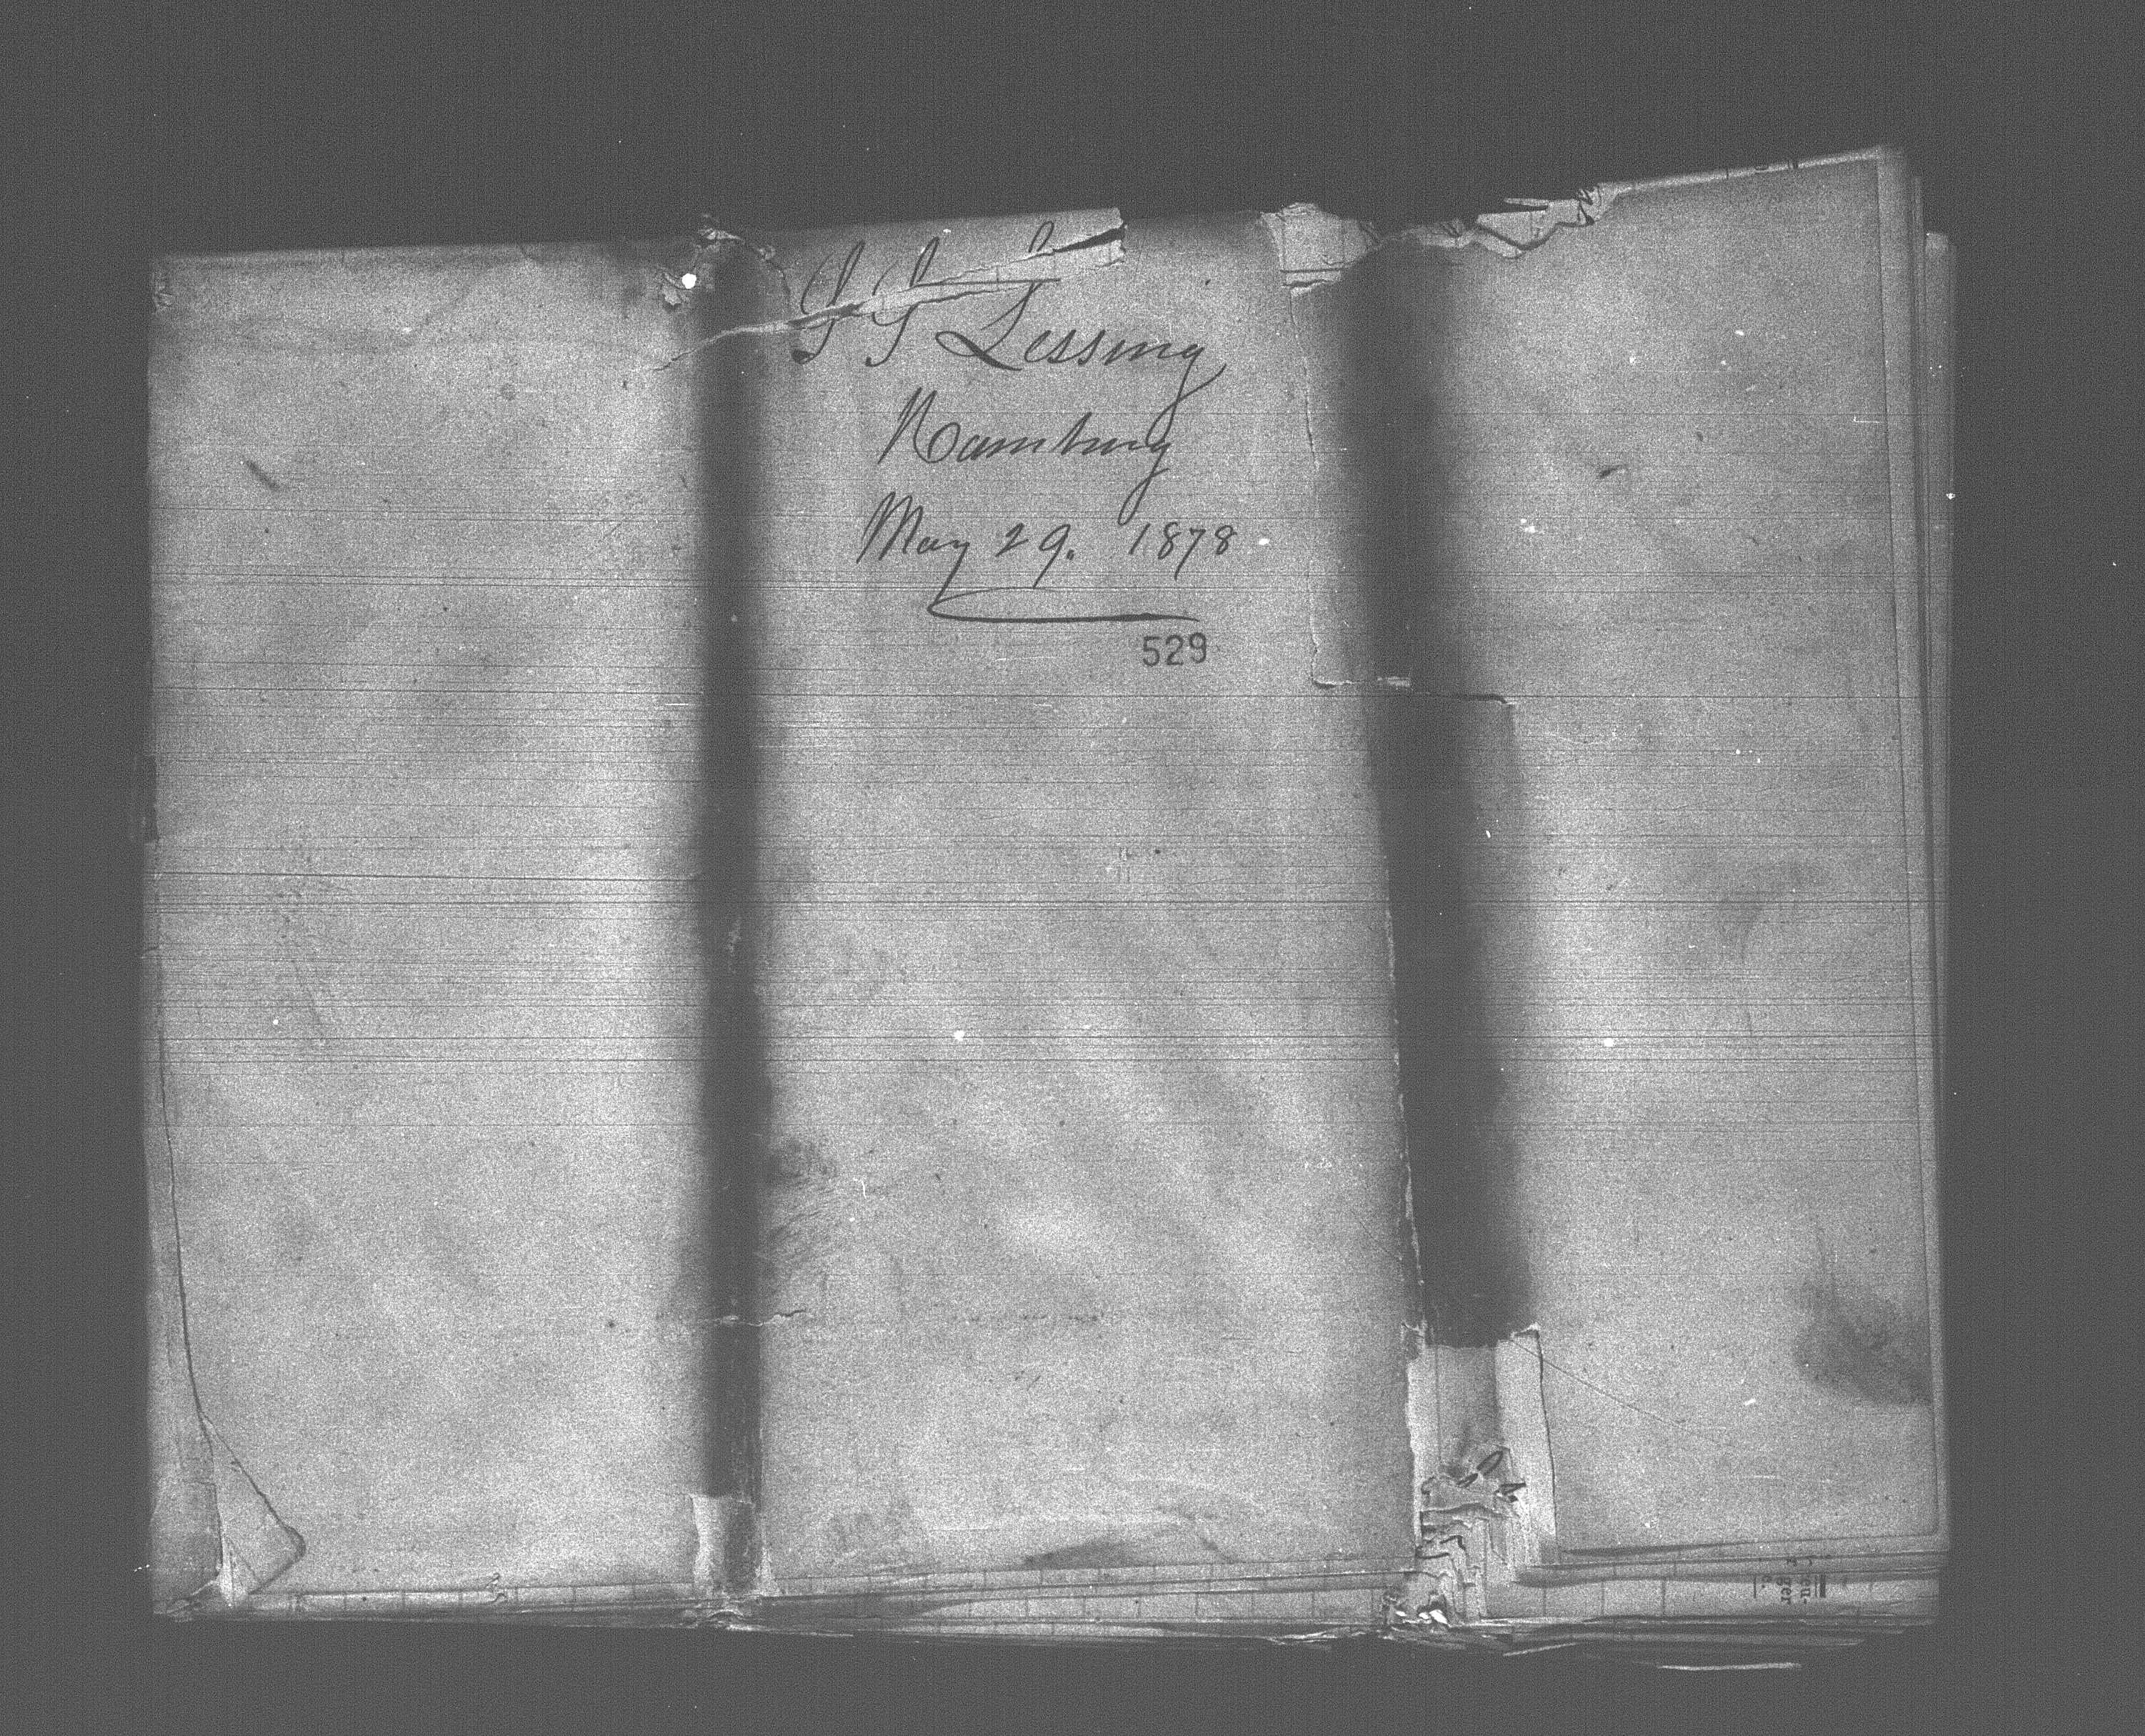 SS Lessing
Hamburg
May 29. 1878
529